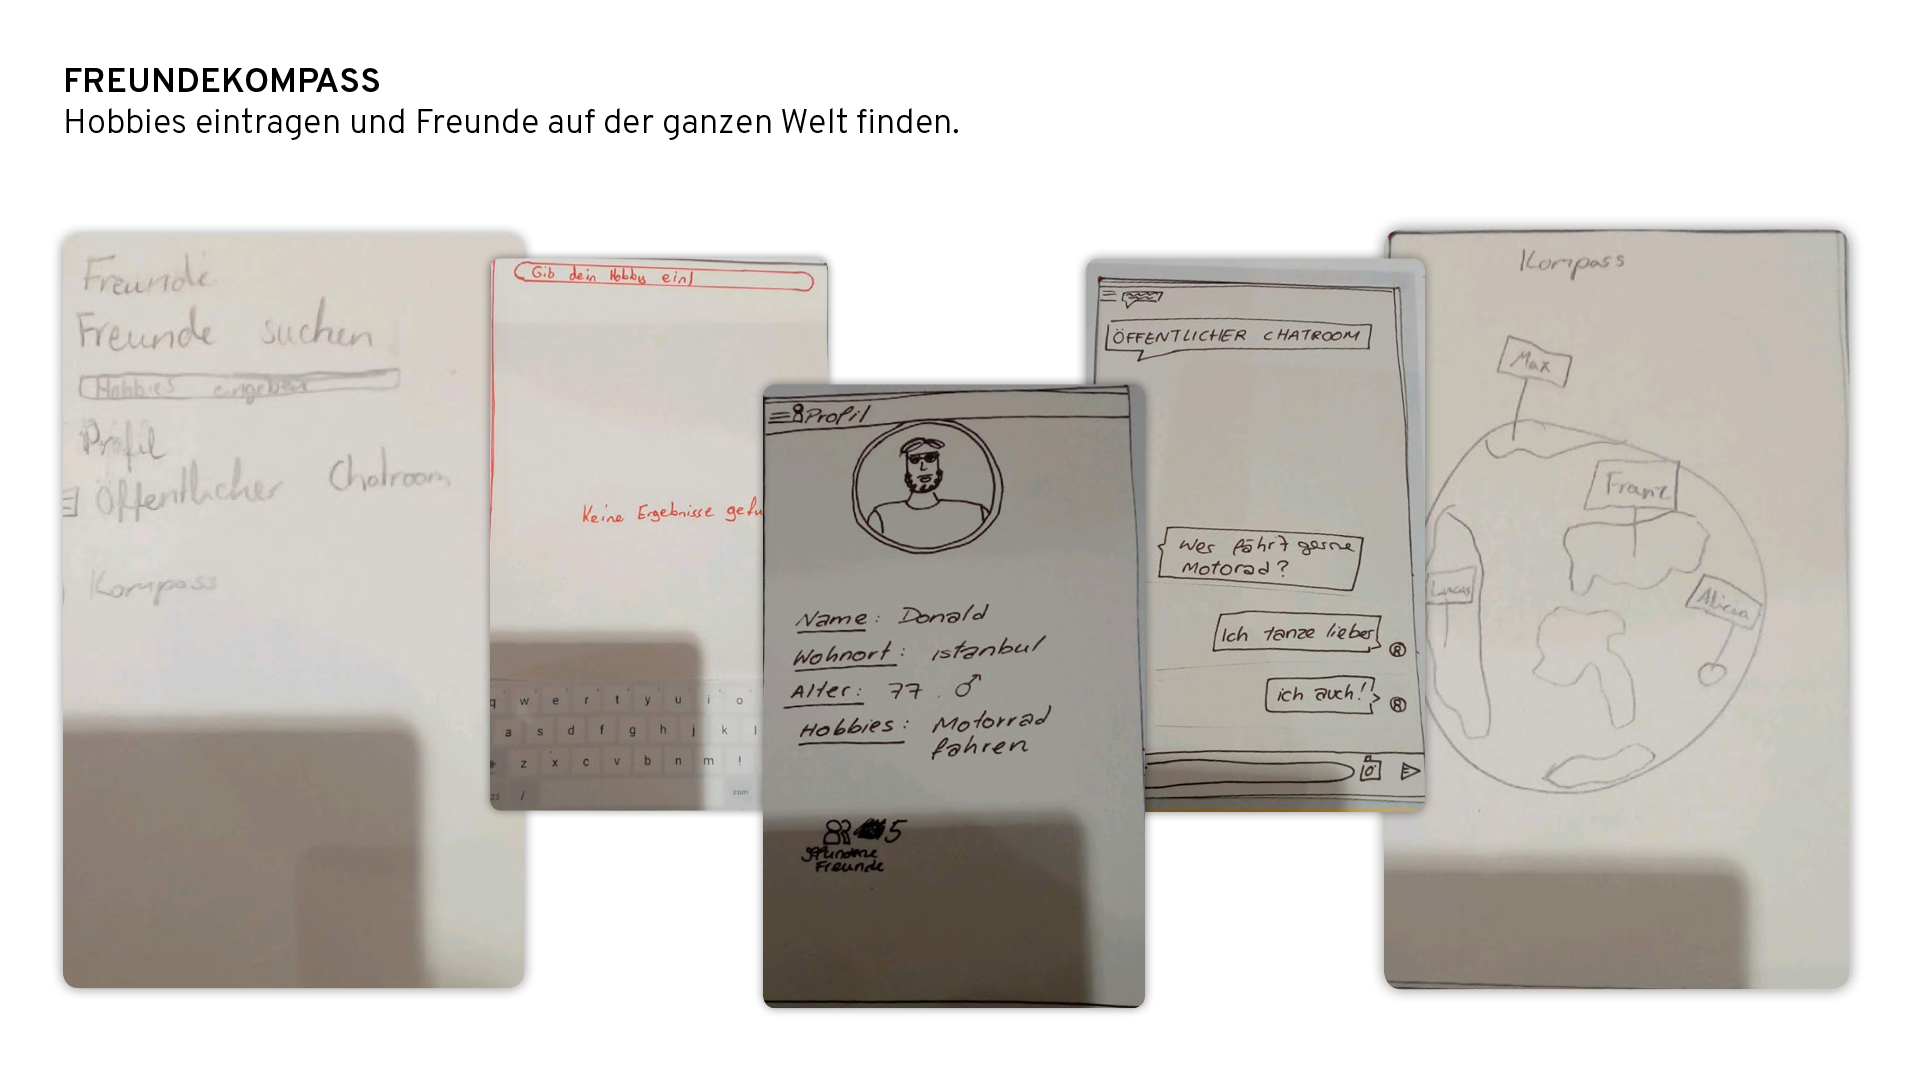 FREUNDEKOMPASS
Hobbies eintragen und Freunde auf der ganzen Welt finden.
Freunde
Freunde suchen
Hobbies eingeben
Profil
Öffentlicher Chatroom
Kompass
Gib dein Hobby ein!
Keine Ergebnisse gefu
q w e r t y u i o
a s d f g h j k l
z x c v b n m !
/ com
Profil
Name: Donald
Wohnort: istanbul
Alter: 77 ♂
Hobbies: Motorrad
fahren
5
gefundene
Freunde
ÖFFENTLICHER CHATROOM
Wer fährt gerne
Motorad?
Ich tanze lieber
ich auch!
Kompass
Max
Franz
Lucas
Alicia